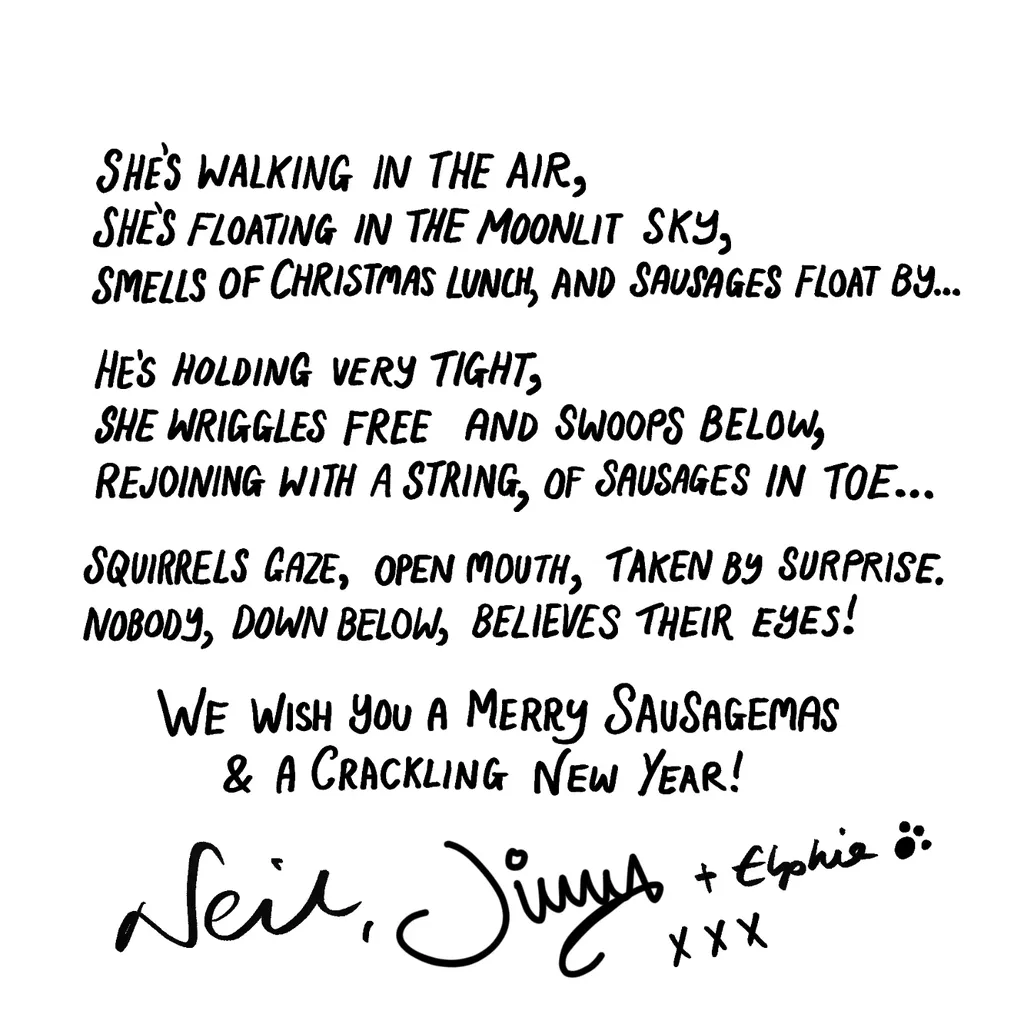 She's walking in the air,
She's floating in the moonlit sky,
Smells of Christmas lunch, and sausages float by...
He's holding very tight,
She wriggles free and swoops below,
Rejoining with a string, of sausages in toe...
Squirrels gaze, open mouth, taken by surprise.
Nobody, down below, believes their eyes!
We wish you a Merry Sausagemas
& a Crackling New Year!
Neil, Jimmy + Elphie
xxx